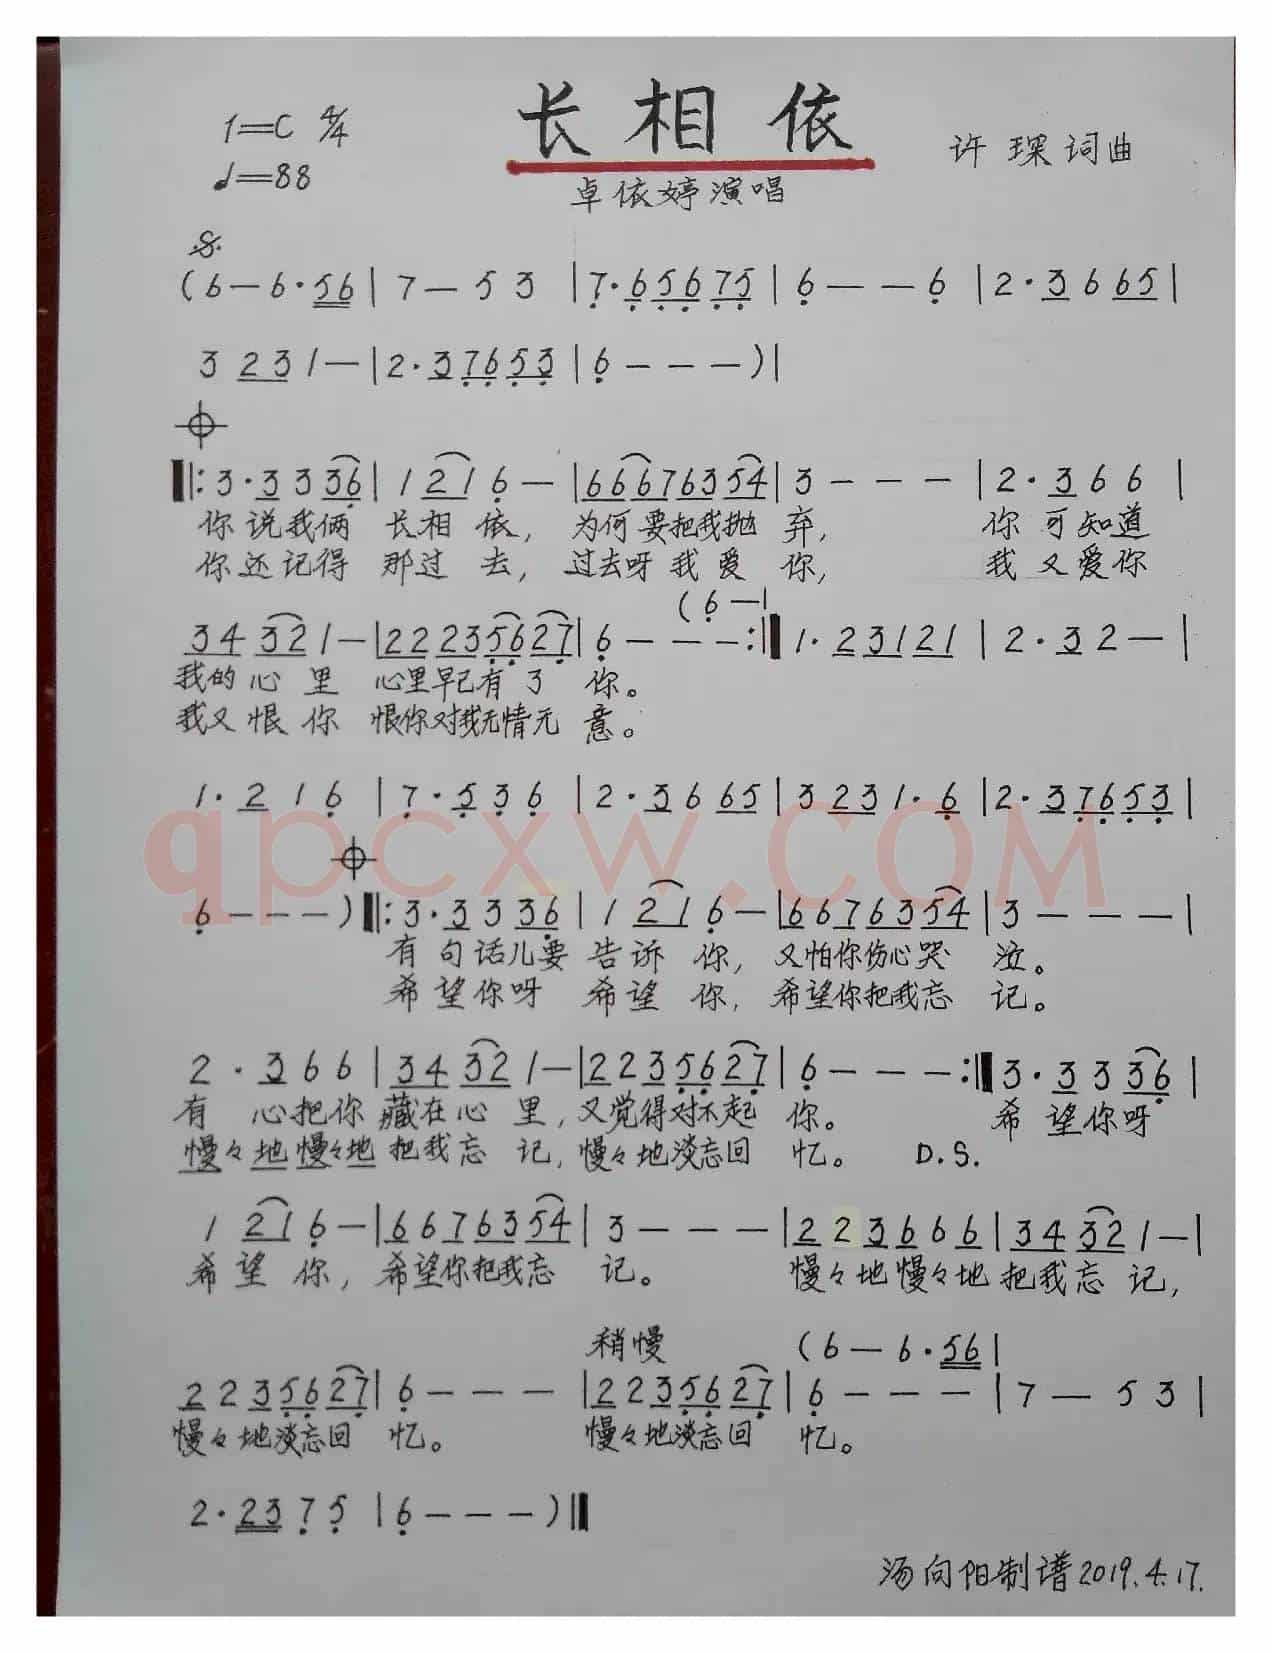 长相依
1=C 4/4
许琛词曲
♩=88
卓依婷演唱
(6—6·56|7—53|7·65675|6——6|2·3665|
3231—|2·37653|6———)|
‖:3·3336|1216—|66676354|3———|2·366|
你说我俩 长相依，为何要把我抛弃，你可知道
你还记得 那过去，过去呀我爱你，我又爱你
(6—|
34321—|22235627|6———:‖1·23121|2·32—|
我的心里 心里早已有了你。
我又恨你 恨你对我无情无意。
1·216|7·536|2·3665|3231·6|2·37653|
qpcxw.COM
6———)‖:3·3336|1216—|66676354|3———|
有句话儿要告诉你，又怕你伤心哭泣。
希望你呀 希望你，希望你把我忘记。
2·366|34321—|2235627|6———:‖3·3336|
有心把你藏在心里，又觉得对不起你。 希望你呀
慢々地慢々地把我忘记，慢々地淡忘回忆。 D.S.
1216—|6676354|3———|223666|34321—|
希望你，希望你把我忘记。 慢々地慢々地把我忘记，
稍慢 (6—6·56|
2235627|6———|2235627|6———|7—53|
慢々地淡忘回忆。 慢々地淡忘回忆。
2·2375|6———)‖
汤向阳制谱2019.4.17.